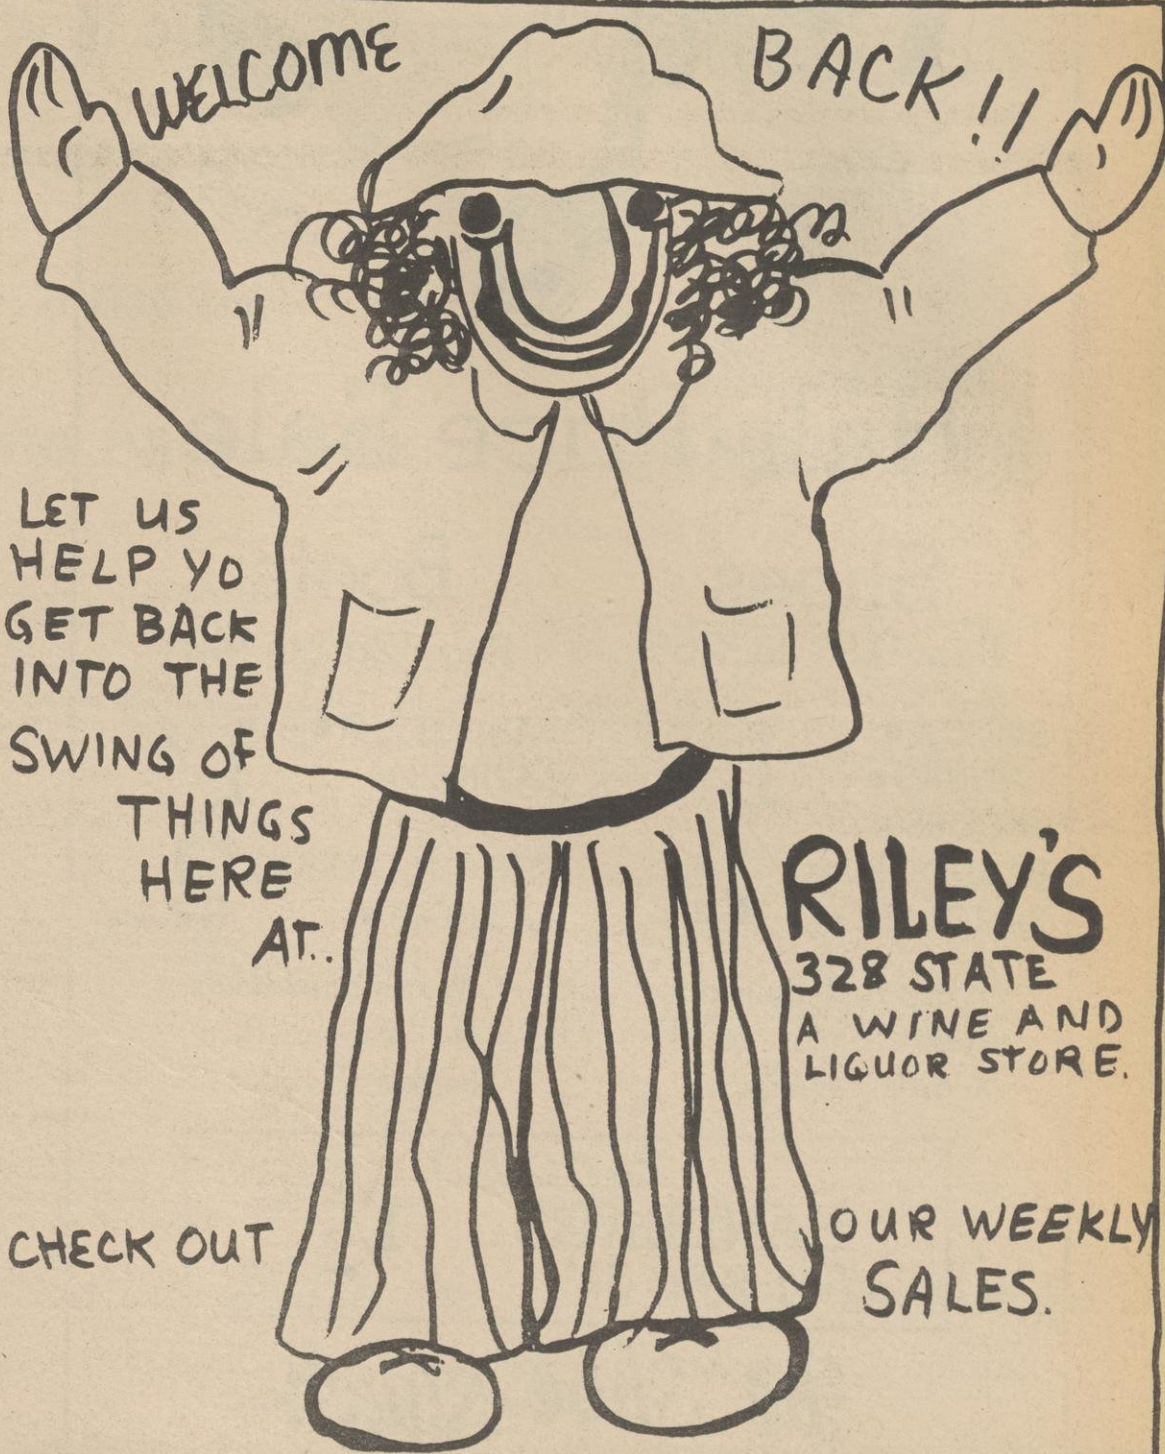 WELCOME BACK!!
LET US
HELP YO
GET BACK
INTO THE
SWING OF
THINGS
HERE
AT..
RILEY'S
328 STATE
A WINE AND
LIQUOR STORE.
CHECK OUT OUR WEEKLY
SALES.